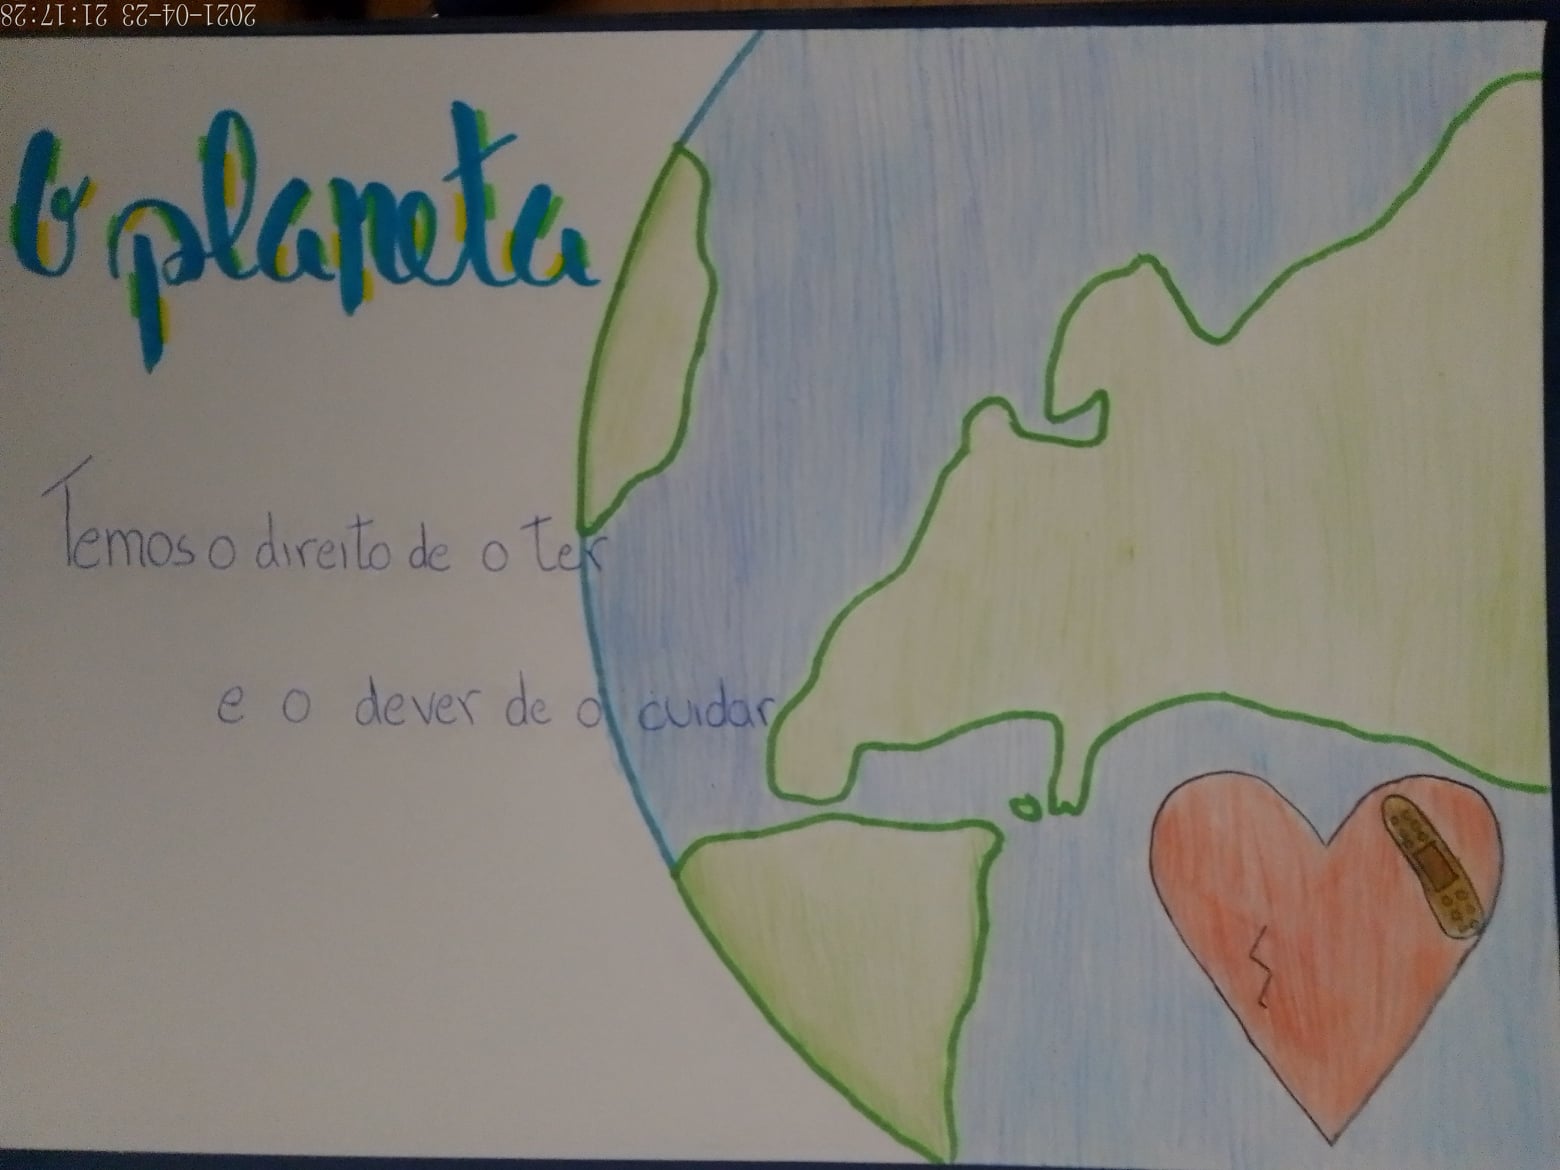 2021-04-23 21:17:28
O planeta
Temos o direito de o ter
e o dever de o cuidar